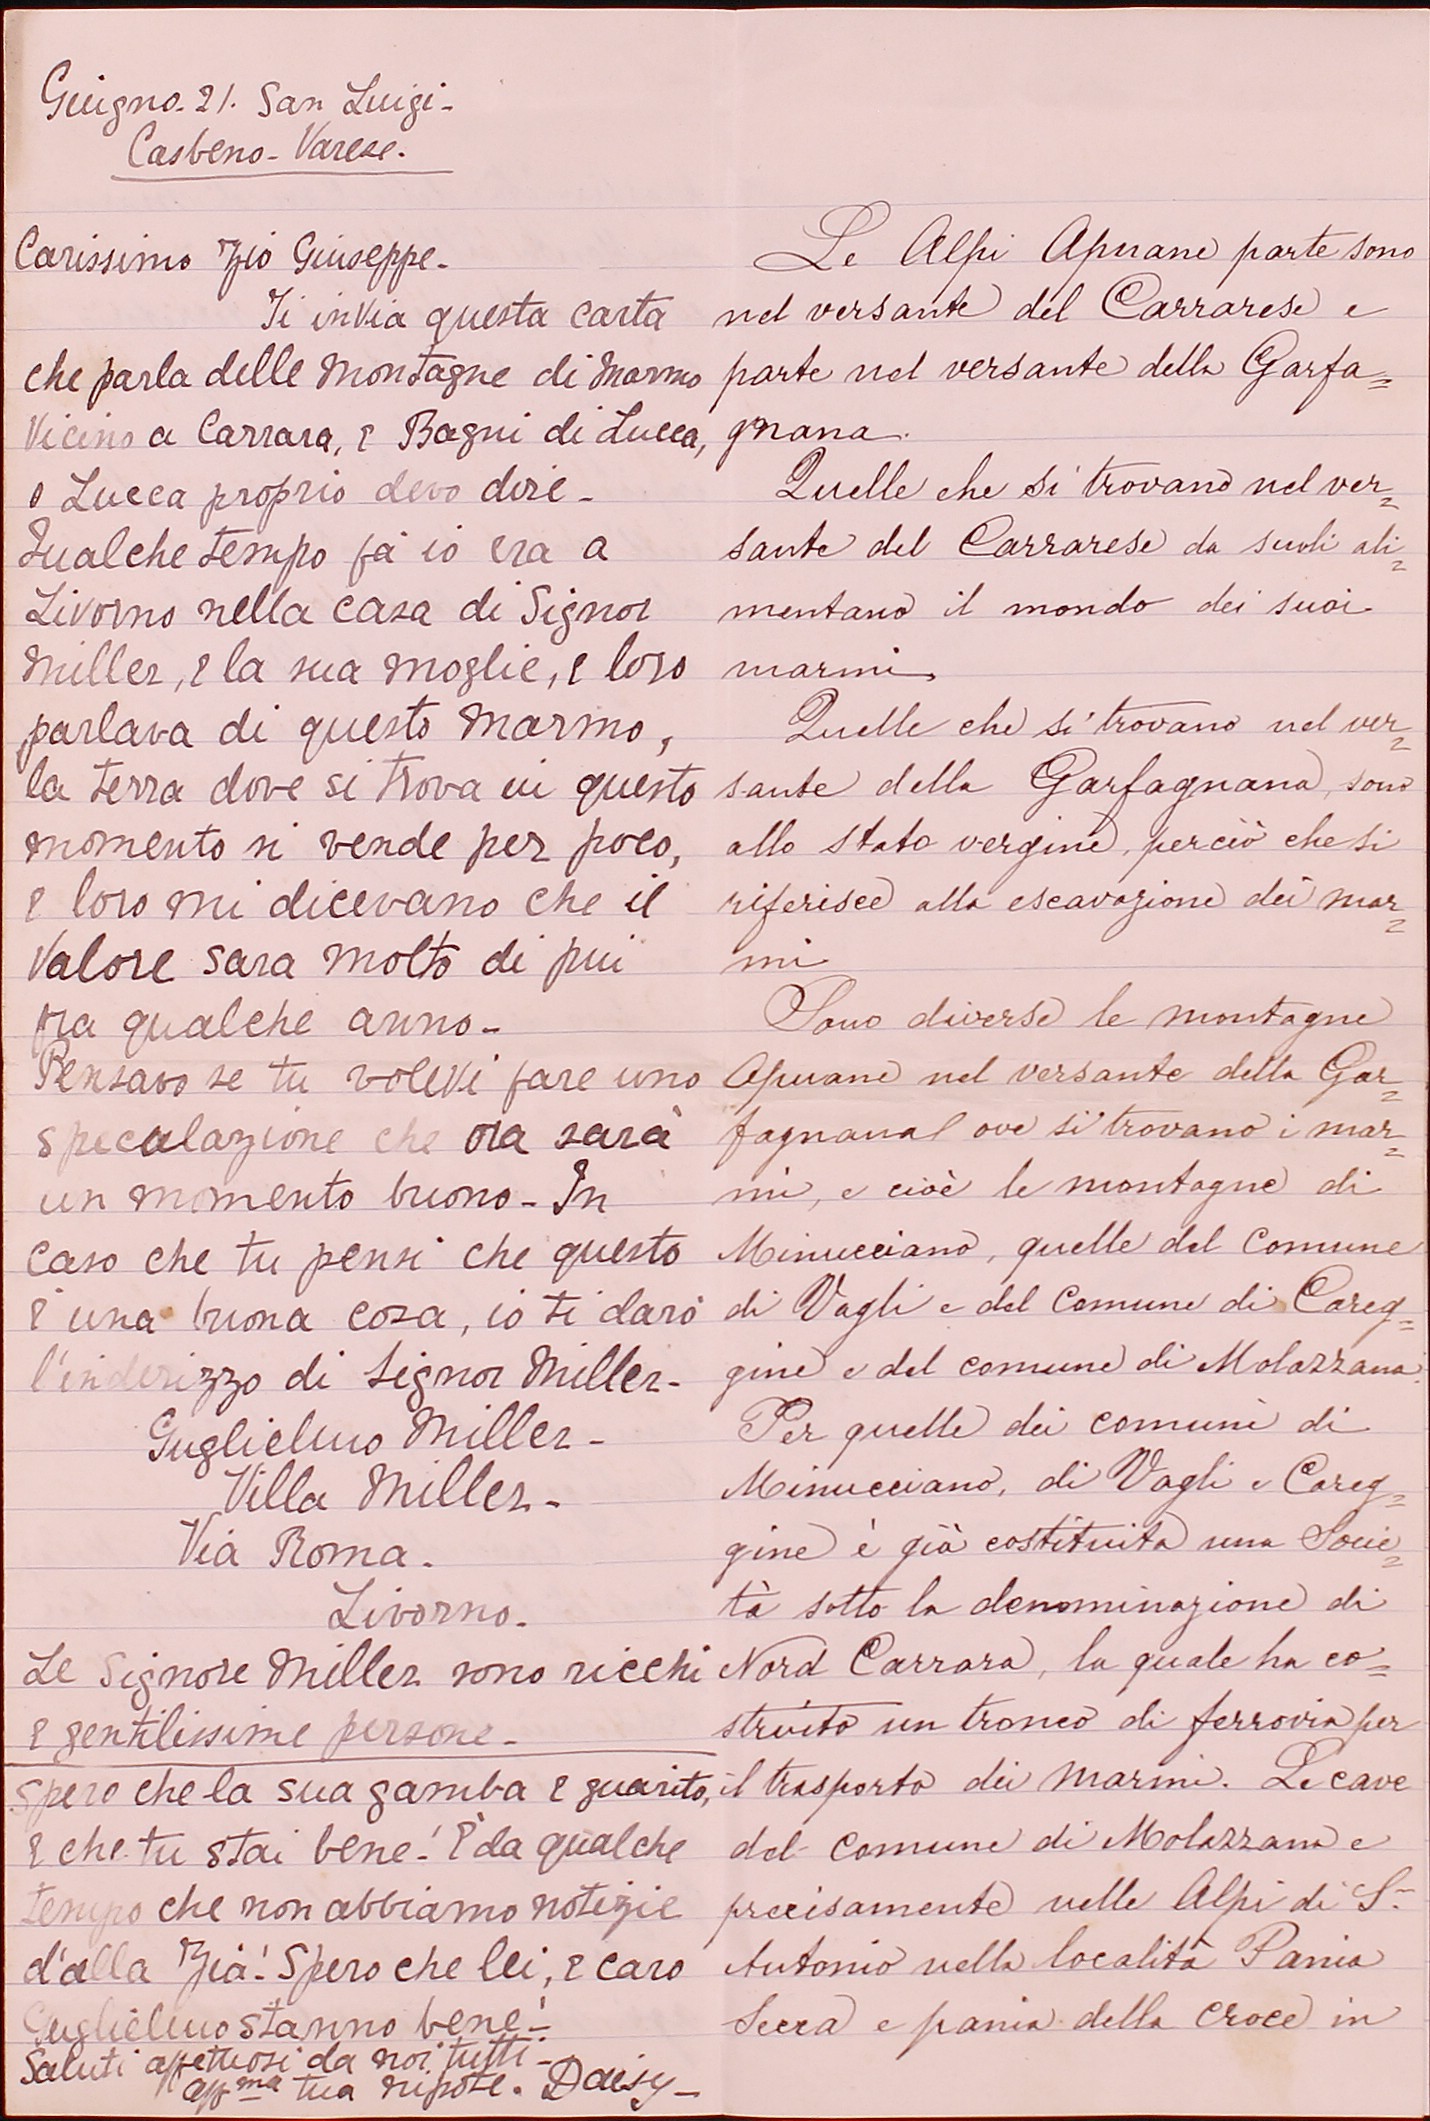 Giugno. 21. San Luigi-
Casbeno- Varese.
Carissimo Zio Giuseppe-
Ti invia questa carta
che parla delle Montagne di Marmo
Vicino a Carrara, e Bagni di Lucca,
o Lucca proprio devo dire-
Qualche tempo fà io era a
Livorno nella casa di Signor
Miller, e la sua moglie, e loro
parlava di questo Marmo,
la terra dove si trova in questo
momento si vende per poco,
e loro mi dicevano che il
Valore sara molto di piu
fra qualche anno-
Pensavo se tu volevi fare uno
specalazione che ora sarà
un momento buono- In
caso che tu pensi che questo
è una buona cosa, io ti darò
l'inderizzo di Signor Miller-
Guglielmo Miller-
Villa Miller-
Via Roma.
Livorno.
Le Signore Miller sono ricchi
e gentilissime persone-
Spero che la sua gamba e guarito,
e che tu stai bene-! È da qualche
tempo che non abbiamo notizie
d'alla Zia-! Spero che lei, e caro
Guglielmo stanno bene-!
Saluti affettuosi da noi tutti-
aff ma tua nipote. Daisy-
Le Alpi Apuane parte sono
nel versante del Carrarese e
parte nel versante della Garfa=
gnana.
Quelle che si trovano nel ver=
sante del Carrarese da secoli ali=
mentano il mondo dei suoi
marmi.
Quelle che si trovano nel ver=
sante della Garfagnana, sono
allo stato vergine, perciò che si
riferisce alla escavazione dei mar=
mi
Sono diverse le montagne
Apuane nel versante della Gar=
fagnana ove si trovano i mar=
mi, e cioè le montagne di
Minucciano, quelle del Comune
di Vagli e del Comune di Careg=
gine e del comune di Molazzana.
Per quelle dei comuni di
Minucciano, di Vagli e Careg=
gine è già costituita una Socie=
tà sotto la denominazione di
Nord Carrara, la quale ha co=
struito un tronco di ferrovia per
il trasporto dei marmi. Le cave
del Comune di Molazzana e
precisamente nelle Alpi di S.
Antonio nella località Pania
Secca e pania della croce in